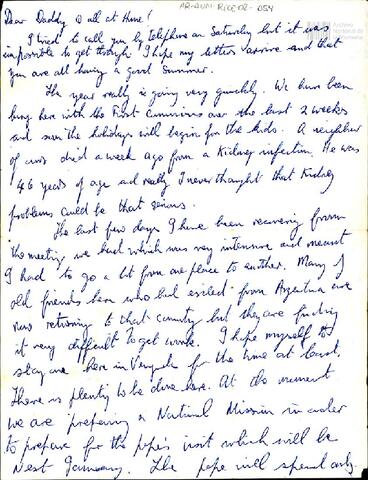 AR-ANM-RICE02-054
Archivo
Nacional de
Dear Daddy & all at home!
I tried to call you by telephone on Saturday but it was
impossible to get through. I hope my letters arrive and that
you are all having a good summer.
The year really is going very quickly. We have been
busy here with the First Communions over the last 2 weeks
and soon the holidays will begin for the kids. A neighbor
of ours died a week ago from a Kidney infection. He was
46 years of age and really I never thought that Kidney
problems could be that serious.
The last few days I have been recovering from
the meeting we had which was very intensive and meant
I had to go a lot from one place to another. Many of
old friends here who had exiled from Argentina are
now returning to that country but they are finding
it very difficult to get work. I hope myself to
stay here in for the time at least.
There is plenty to be done here. At do moment
we are preparing a National Mission in order
to prepare for the pope's visit which will be
next January. The pope will spend only